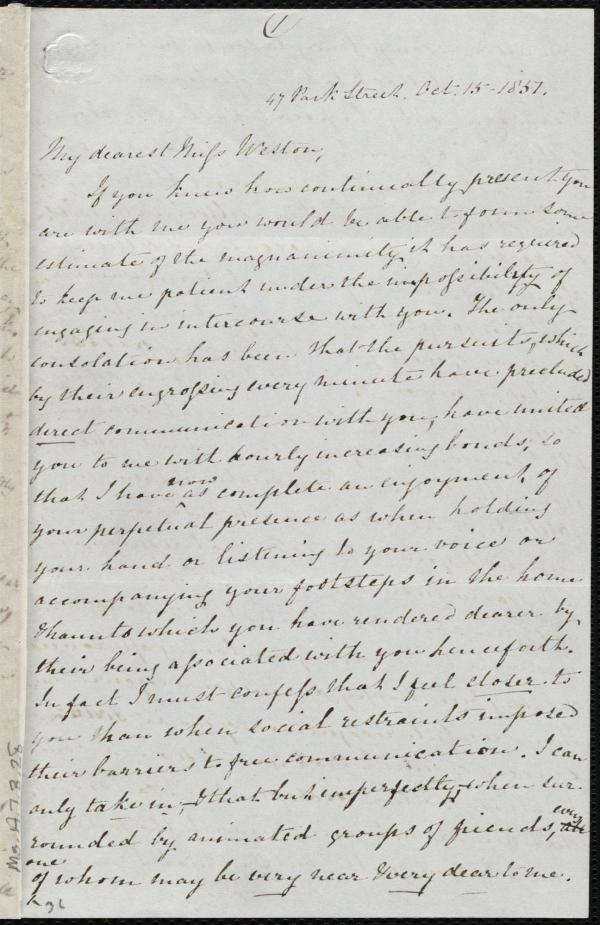 (1)
47 Park Street. Oct. 15-1851.
My dearest Miss Weston,
If you knew how continually present you
are with me you would be able to form some
estimate of the magnanimity it has required
to keep me patient under the impossibility of
engaging in intercourse with you. The only
consolation has been that the pursuits, which
by their engrossing every minute have precluded
direct communication with you, have united
you to me with hourly increasing bonds, so
that I have now as complete an enjoyment of
your perpetual presence as when holding
your hand or listening to your voice or
accompanying your footsteps in the home
haunts which you have rendered dearer by
their being associated with you henceforth.
In fact I must confess that I feel closer to
you than when social restraints imposed
their barriers to free communication. I can
only take in, & that but imperfectly, when sur-
rounded by animated groups of friends, every
one
of whom may be very near & very dear to me.
Ms. A.7.2.28
96